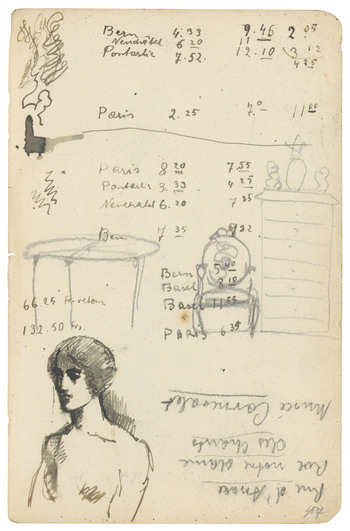 Bern 4.33 9.46 2 05
Neuchâtel 6 20 11
Pontarlie 7.52. 12.10 3 12
4 25
Paris 2.25 11 00
Paris 8 20 7 55
Pontarlie 3. 33 4 25
Neuchatel 6.20 7 35
Bern 7 35 9 32
Bern 5 40
Basel 8 10
Basel 11 55
PARIS 6 35
66.25
132.50 Frs.
Rue
Rue notre dame
des champs
Musée Carnavalet